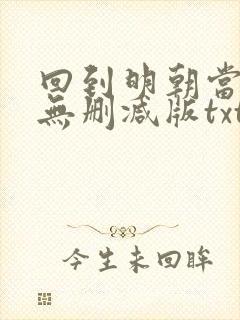 回到明朝當
無刪减版txt
今生未回眸